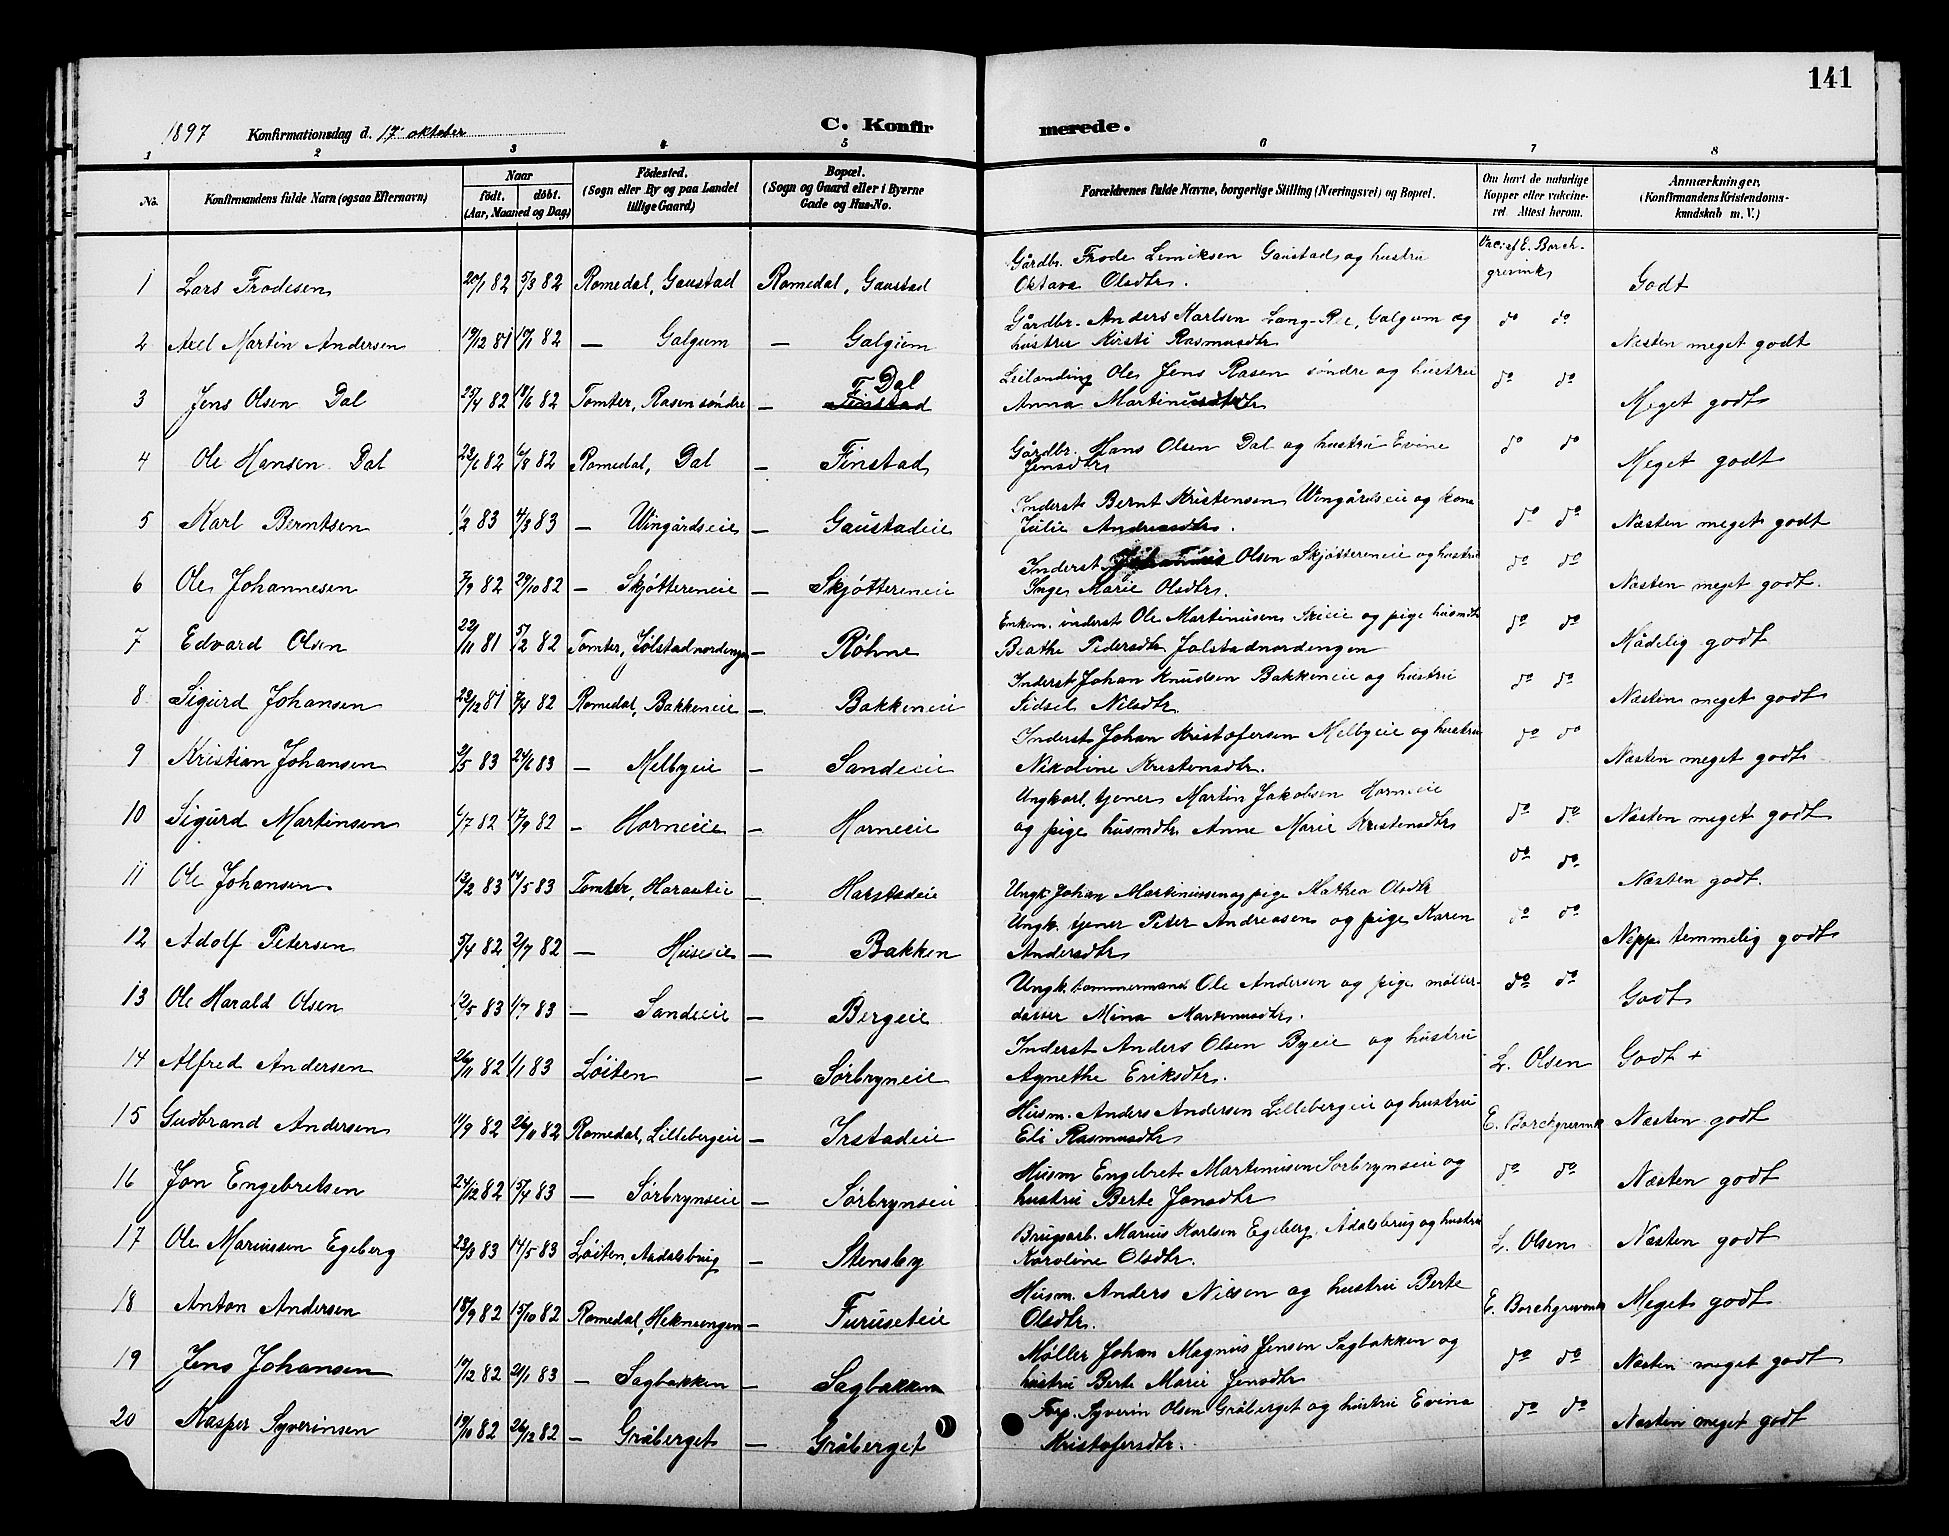 141
1897 Konfirmationsdag d. 17 oktober C. Konfirmerede.
1 2 3 4 5 6 7 8
No. Konfirmandens fulde Navn (ogsaa Efternavn) Naar født. døbt. (Aar, Maaned og Dag) Fødested. (Sogn eller By og paa Landet tillige Gaard) Bopæl. (Sogn og Gaard eller i Byerne Gade og Hus-No. Forældrenes fulde Navne, borgerlige Stilling (Næringsvei) og Bopæl. Om havt de naturlige Kopper eller vakcineret. Attest herom. Anmærkninger. (Konfirmandens Kristendomskundskab m. V.)
1 Lars Frodesen 20/1 82 5/3 82 Romedal, Gaustad Romedal, Gaustad Gårdbr. Frode Gaustad og hustru Vac. af E. Borch-
Oktava Olsdtr. grevink Godt
2 Axel Martin Andersen 19/12 81 82 — Galgum — Galgum Gårdbr. Anders Karlsen Galgum og do do
hustru Kirsti Rasmusdtr Næsten meget godt
3 Jens Olsen Dal 25/4 82 18/6 82 Tomter, Rasen søndre — Finstad Dal Leilending Ole Jens Rasen søndre og hustru do do
Anna Martinusdtr Meget godt
4 Ole Hansen Dal 82 6/8 82 Romedal, Dal — Finstad Gårdbr. Hans Olsen Dal og hustru Evine do do
Jensdtr Meget godt
5 Karl Berntsen 1/2 83 4/3 83 — Wingårdseie — Gaustadeie Inderst Bernt Kristensen Wingårdseie og kone
Julie Andreasdtr. do do Næsten meget godt
6 Ole Johannesen 7/9 82 29/10 82 — Skjøttereneie — Skjøttereneie Inderst Olsen Skjøttereneie og hustru do do
Inge Marie Olsdtr. Næsten meget godt.
7 Edvard Olsen 22/11 81 5/2 82 Tomter, Jølstadnordengen — Røhne Enkem. inderst Ole Martinusen og pige husmdtr. do do
Beathe Pedersdtr Jølstadnordengen Nådelig godt
8 Sigurd Johansen 29/12 81 7/4 82 Romedal, Bakkeneie — Bakkeneie Inderst Johan Knudsen Bakkeneie og hustru do do
Sidsel Nilsdtr. Næsten meget godt
9 Kristian Johansen 2/5 83 24/6 83 — Melbyeie — Sandeeie Inderst Johan Kristofersen Melbyeie og hustru do do
Nikoline Kristensdtr. Næsten meget godt
10 Sigurd Martinsen 6/7 82 17/9 82 — Horneeie — Horneeie Ungkarl tjener Martin Jakobsen Horneeie
og pige husmdtr. Anne Marie Kristensdtr do do Næsten meget godt
11 Ole Johansen 13/2 83 14/5 83 Tomter, — Harstadeie do do
Ungk. Johan Martinussen og pige Mathea Olsdtr Næsten godt.
12 Adolf Petersen 5/4 82 2/7 82 — Huseeie — Bakken Ungk. tjener Peter Andreasen og pige Karen do do
Andersdtr Neppe temmelig godt
13 Ole Harald Olsen 12/5 83 1/7 83 — Sandeeie — Bergeie Ungk. tømmermand Ole Andersen og pige møller- do do
datter Mina Martinusdtr. Godt
14 Alfred Andersen 26/11 82 1/1 83 Løiten — Sørbryneie Inderst Anders Olsen Byeie og hustru
Agnethe Eriksdtr. L. Olsen Godt +
15 Gudbrand Andersen 11/9 82 26/11 82 Romedal, Lillebergeie — Irstadeie Husm. Anders Andersen Lillebergeie og hustru
Eli Rasmusdtr E. Borchgrevink Næsten godt
16 Jon Engebretsen 24/12 82 15/4 83 — Sørbrynseie — Sørbrynseie Husm Engebret Martinusen Sørbrynseie og do do
hustru Berte Jonsdtr Næsten godt
17 Ole Mariussen Egeberg 23/3 83 14/5 83 Løiten, Aadalsbrug — Stensby Brugsarb. Marius Karlsen Egeberg, Ådalsbrug og hustru
Karoline Olsdtr. L. Olsen Næsten godt
18 Anton Andersen 18/9 82 15/10 82 Romedal, Heknesengen — Furuseteie Husm. Anders Nilsen og hustru Berte
Olsdtr. E. Borchgrevink Meget godt
19 Jens Johansen 19/12 82 21/1 83 — Sagbakken — Sagbakken Møller Johan Magnus Jensen Sagbakken og do do
hustru Berte Marie Jensdtr Næsten meget godt
20 Kasper Syverinsen 19/10 82 26/12 82 — Gråberget — Gråberget Forp. Syverin Olsen Gråberget og hustru Evina do do
Kristofersdtr. Næsten meget godt